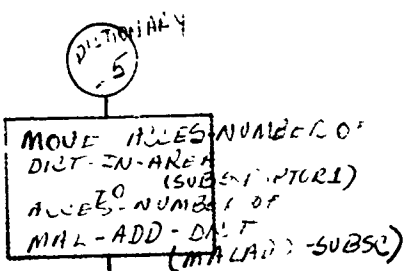 DICTIONARY
5
MOVE ACCES-NUMBER OF
DICT-IN-AREA
(SUBSCRIPTOR1)
TO
ACCES-NUMBER OF
MAL-ADD-DICT
(MALADD-SUBSC)